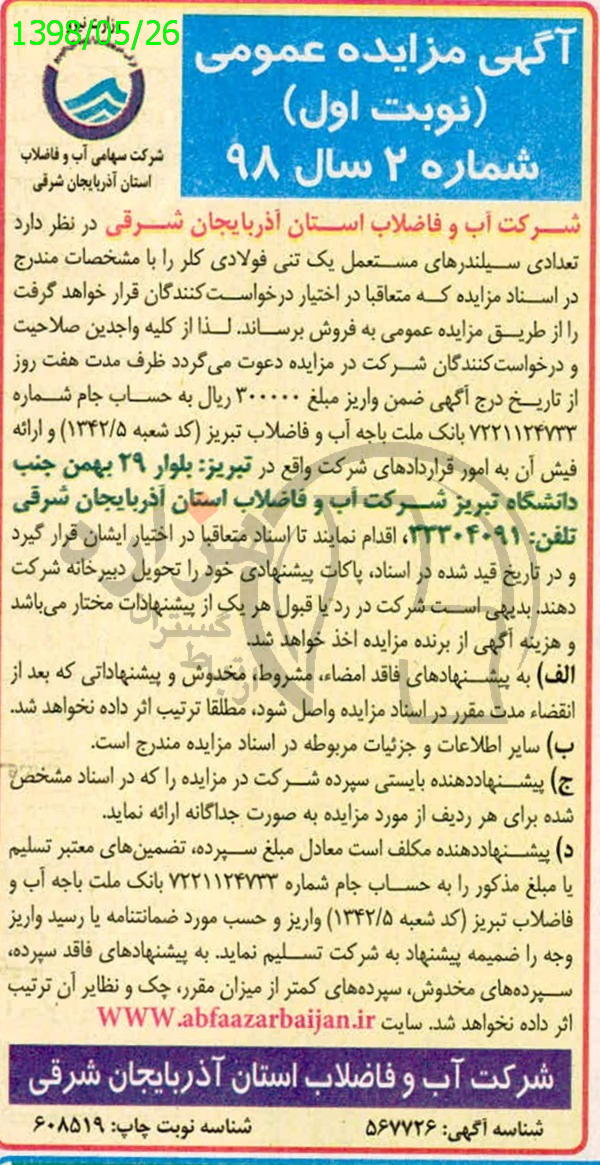 1398/05/26
وزارت نیرو
شرکت سهامی آب و فاضلاب
استان آذربایجان شرقی
آگهی مزایده عمومی
(نوبت اول)
شماره ۲ سال ۹۸
شرکت آب و فاضلاب استان آذربایجان شرقی در نظر دارد
تعدادی سیلندرهای مستعمل یک تنی فولادی کلر را با مشخصات مندرج
در اسناد مزایده که متعاقبا در اختیار درخواست‌کنندگان قرار خواهد گرفت
را از طریق مزایده عمومی به فروش برساند. لذا از کلیه واجدین صلاحیت
و درخواست‌کنندگان شرکت در مزایده دعوت می‌گردد ظرف مدت هفت روز
از تاریخ درج آگهی ضمن واریز مبلغ ۳۰۰۰۰۰ ریال به حساب جام شماره
۷۲۲۱۱۲۴۷۳۳ بانک ملت باجه آب و فاضلاب تبریز (کد شعبه ۱۳۴۲/۵) و ارائه
فیش آن به امور قراردادهای شرکت واقع در تبریز: بلوار ۲۹ بهمن جنب
دانشگاه تبریز شرکت آب و فاضلاب استان آذربایجان شرقی
تلفن: ۳۳۳۰۴۰۹۱، اقدام نمایند تا اسناد متعاقبا در اختیار ایشان قرار گیرد
و در تاریخ قید شده در اسناد، پاکات پیشنهادی خود را تحویل دبیرخانه شرکت
دهند. بدیهی است شرکت در رد یا قبول هر یک از پیشنهادات مختار می‌باشد
و هزینه آگهی از برنده مزایده اخذ خواهد شد.
الف) به پیشنهادهای فاقد امضاء، مشروط، مخدوش و پیشنهاداتی که بعد از
انقضاء مدت مقرر در اسناد مزایده واصل شود، مطلقا ترتیب اثر داده نخواهد شد.
ب) سایر اطلاعات و جزئیات مربوطه در اسناد مزایده مندرج است.
ج) پیشنهاددهنده بایستی سپرده شرکت در مزایده را که در اسناد مشخص
شده برای هر ردیف از مورد مزایده به صورت جداگانه ارائه نماید.
د) پیشنهاددهنده مکلف است معادل مبلغ سپرده، تضمین‌های معتبر تسلیم
یا مبلغ مذکور را به حساب جام شماره ۷۲۲۱۱۲۴۷۳۳ بانک ملت باجه آب و
فاضلاب تبریز (کد شعبه ۱۳۴۲/۵) واریز و حسب مورد ضمانتنامه یا رسید واریز
وجه را ضمیمه پیشنهاد به شرکت تسلیم نماید. به پیشنهادهای فاقد سپرده،
سپرده‌های مخدوش، سپرده‌های کمتر از میزان مقرر، چک و نظایر آن ترتیب
اثر داده نخواهد شد. سایت WWW.abfaazarbaijan.ir
شرکت آب و فاضلاب استان آذربایجان شرقی
شناسه آگهی: ۵۶۷۷۲۶
شناسه نوبت چاپ: ۶۰۸۵۱۹